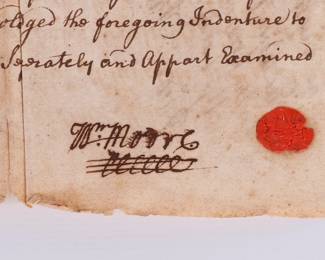 oldged the foregoing Indenture to
Seperately and Appart Examined
Wm. Moore